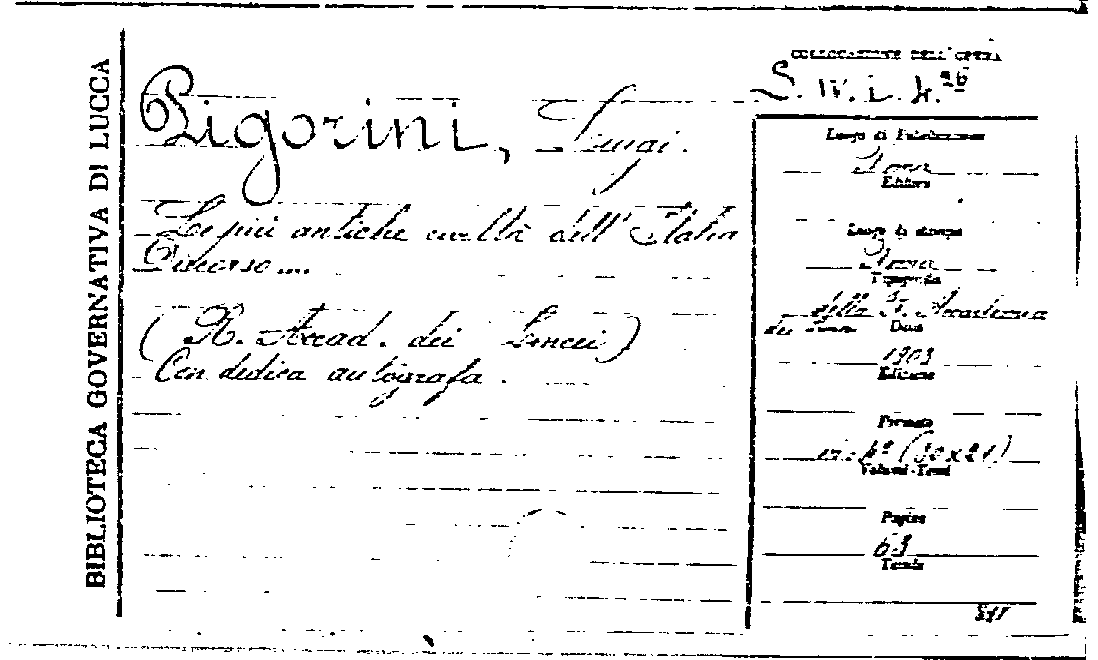 BIBLIOTECA GOVERNATIVA DI LUCCA
Pigorini, Luigi.
Le più antiche civiltà dell'Italia
Discorso....
(R. Accad. dei Lincei)
Con dedica autografa.
COLLOCAZIONE DELL'OPERA
S. IV. i. 4. 26
Luogo di Pubblicazione
Roma
Editore
Luogo di stampa
Roma
Tipografia
della R. Accademia
dei Lincei
Data
1903
Edizione
Formato
in-4º (30x21)
Volumi-Tomi
Pagine
63
Tavole